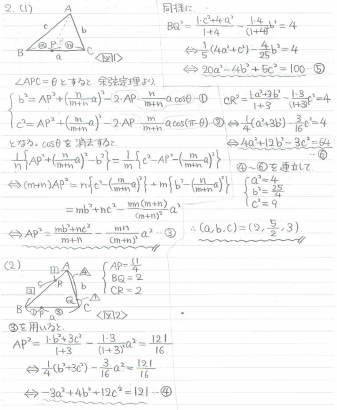 2. (1)
A
c b
m P n
B a C <図1>
∠APC = θ とすると、余弦定理より
b² = AP² + (n/(m+n) a)² - 2·AP·n/(m+n) a cosθ …①
c² = AP² + (m/(m+n) a)² - 2·AP·m/(m+n) a cos(π-θ) …②
となる。cosθ を消去すると
1/n {AP² + (n/(m+n) a)² - b²} = 1/m {c² - AP² - (m/(m+n) a)²}
⇔ (m+n)AP² = n{c² - (m/(m+n) a)²} + m{b² - (n/(m+n) a)²}
= mb² + nc² - mn(m+n)/(m+n)² a²
⇔ AP² = (mb² + nc²)/(m+n) - mn/(m+n)² a² …③
(2)
A
R
Q
B P C
<図2>
AP = 11/4
BQ = 2
CR = 2
③を用いると、
AP² = (1·b² + 3c²)/(1+3) - 1·3/(1+3)² a² = 121/16
⇔ 1/4 (b² + 3c²) - 3/16 a² = 121/16
⇔ -3a² + 4b² + 12c² = 121 …④
同様に
BQ² = (1·c² + 4·a²)/(1+4) - 1·4/(1+4)² b² = 4
⇔ 1/5 (4a² + c²) - 4/25 b² = 4
⇔ 20a² - 4b² + 5c² = 100 …⑤
CR² = (1·a² + 3b²)/(1+3) - 1·3/(1+3)² c² = 4
⇔ 1/4 (a² + 3b²) - 3/16 c² = 4
⇔ 4a² + 12b² - 3c² = 64 …⑥
④~⑥を連立して
a² = 4
b² = 25/4
c² = 9
∴ (a, b, c) = (2, 5/2, 3)